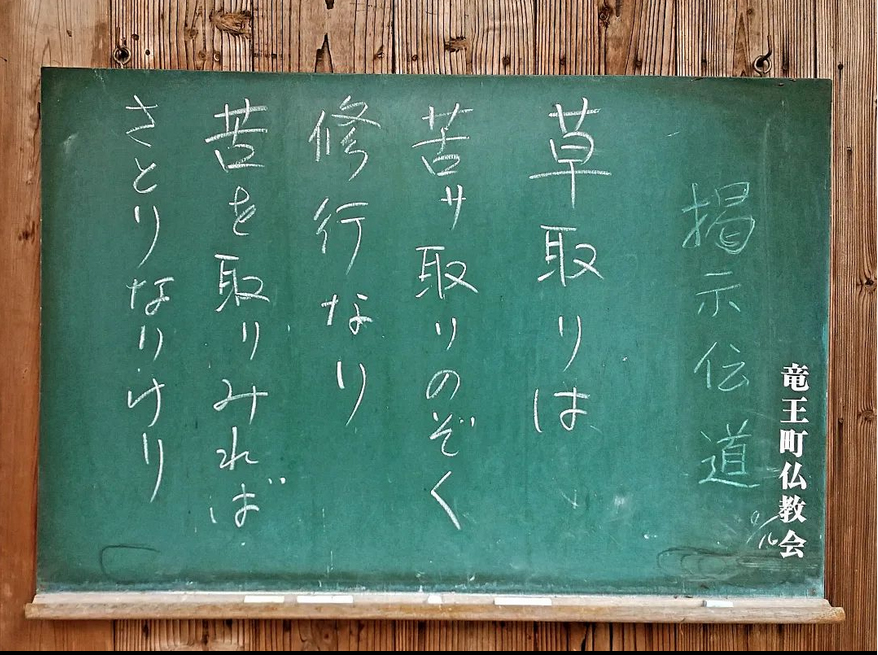 竜王町仏教会
掲示伝道 9/16
草取りは
苦サ取りのぞく
修行なり
苦を取りみれば
さとりなりけり